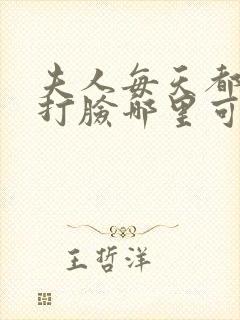 夫人每天都
打脸哪里可
王哲洋